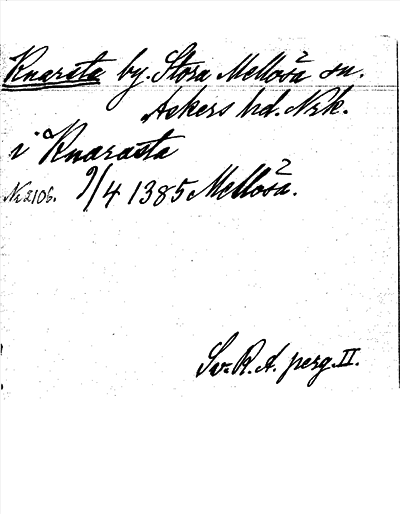 Knarsta by. Stora Mellösa sn.
Askers hd. Nrk.
i Knarasta
Nr 2106. 9/4 1385 Mellösa.
Sv. R. A. perg. II.